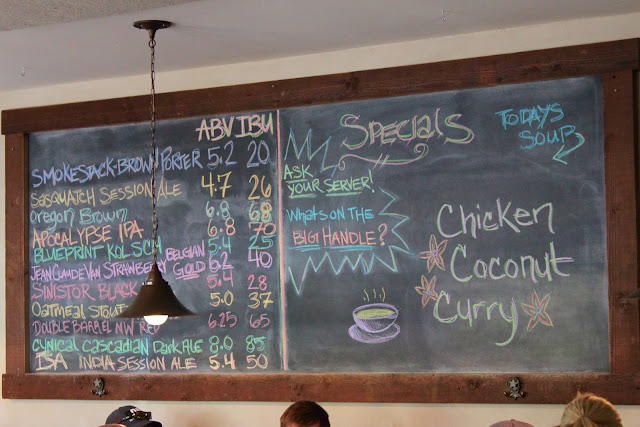 ABV IBU
SMOKESTACK-BROWN PORTER 5.2 20
SASQUATCH SESSION ALE 4.7 26
Oregon Brown 6.8 68
APOCALYPSE IPA 6.8 70
BLUEPRINT KOLSCH 5.4 25
JEAN CLAUDE VAN STRAWBERRY BELGIAN GOLD 6.2 40
SINISTOR BLACK 5.4 28
Oatmeal Stout 5.0 37
DOUBLE BARREL NW RED 6.25 65
CYNICAL CASCADIAN DARK ALE 8.0 85
ISA INDIA SESSION ALE 5.4 50
Specials
ASK
YOUR SERVER!
WHATS ON THE
BIG! HANDLE?
TODAYS
SOUP
Chicken
Coconut
Curry